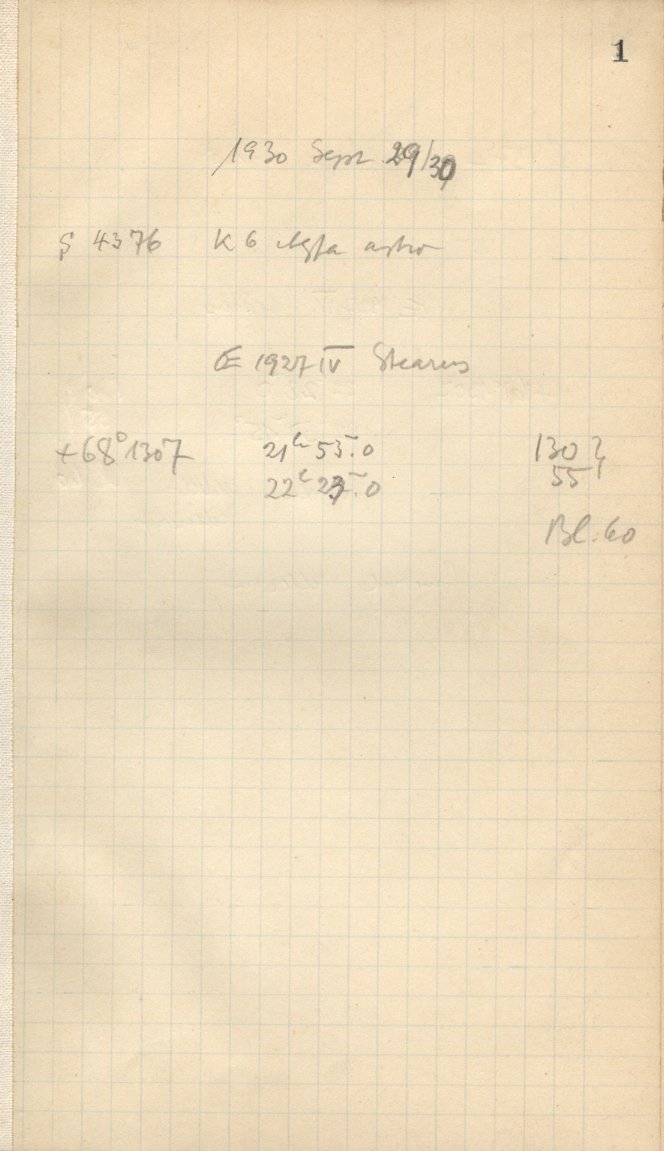 1
1930 Sept 29/30
S 4376 K 6 Agfa astro
1927 IV Stearns
+68° 1307 21h 53m.0 130 ?
22h 23m.0 55
Bl. 60